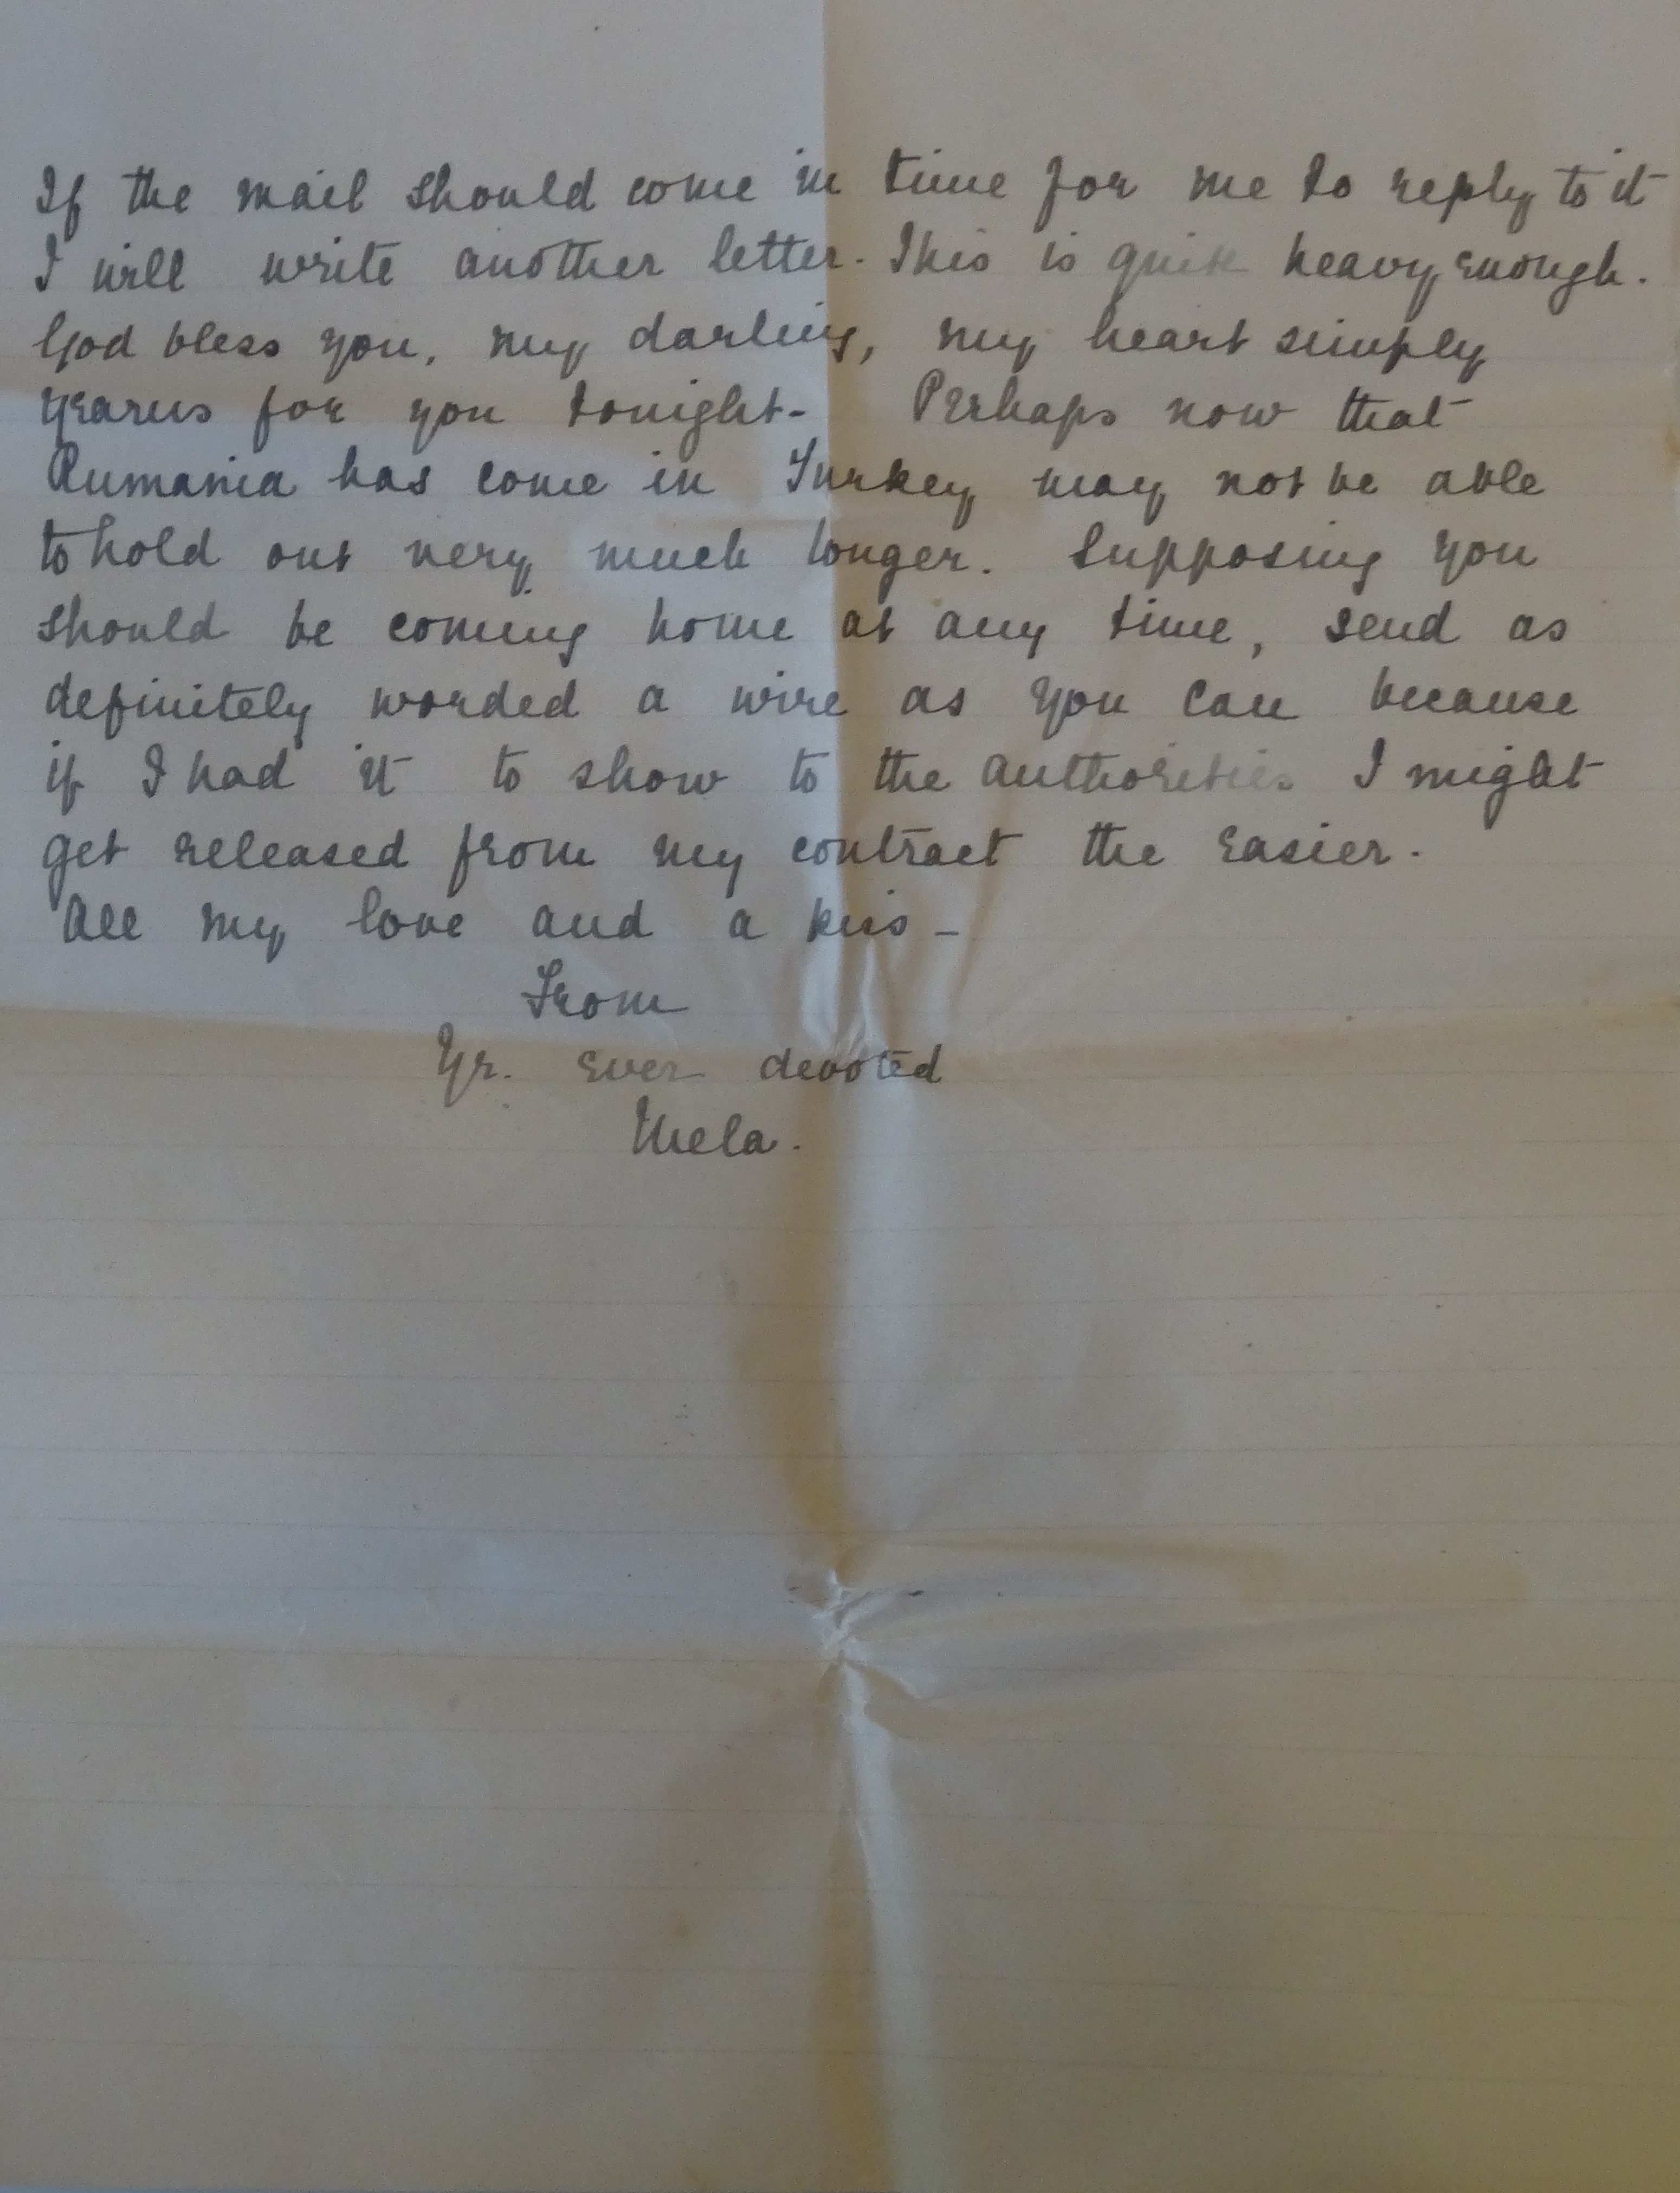 If the mail should come in time for me to reply to it
I will write another letter. This is quite heavy enough.
God bless you, my darling, my heart simply
yearns for you tonight-   Perhaps now that
Rumania has come in Turkey may not be able
to hold out very much longer. Supposing you
should be coming home at any time, send as
definitely worded a wire as you can because
if I had it to show to the authorities I might
get released from my contract the easier.
All my love and a kiss -
From
Yr. ever devoted
Mela.